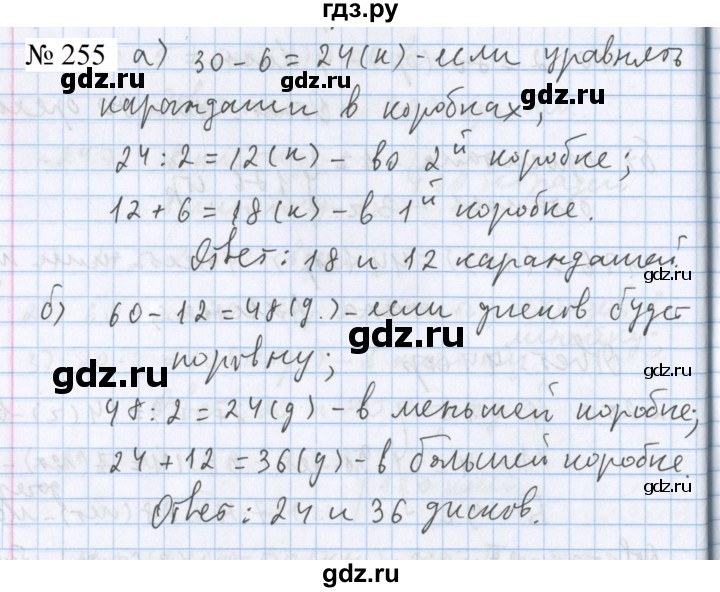 гдз.ру
№ 255 а) 30 – 6 = 24 (к) – если уравнять
карандаши в коробках;
24 : 2 = 12 (к) – во 2й коробке;
12 + 6 = 18 (к) – в 1й коробке.
Ответ: 18 и 12 карандашей.
gdz.ru
б) 60 – 12 = 48 (д.) – если дисков будет
gdz.ru
поровну;
gdz.ru
gdz.ru
48 : 2 = 24 (д) – в меньшей коробке;
24 + 12 = 36 (д) – в большей коробке.
gdz.ru
Ответ: 24 и 36 дисков.
gdz.ru
gdz.ru